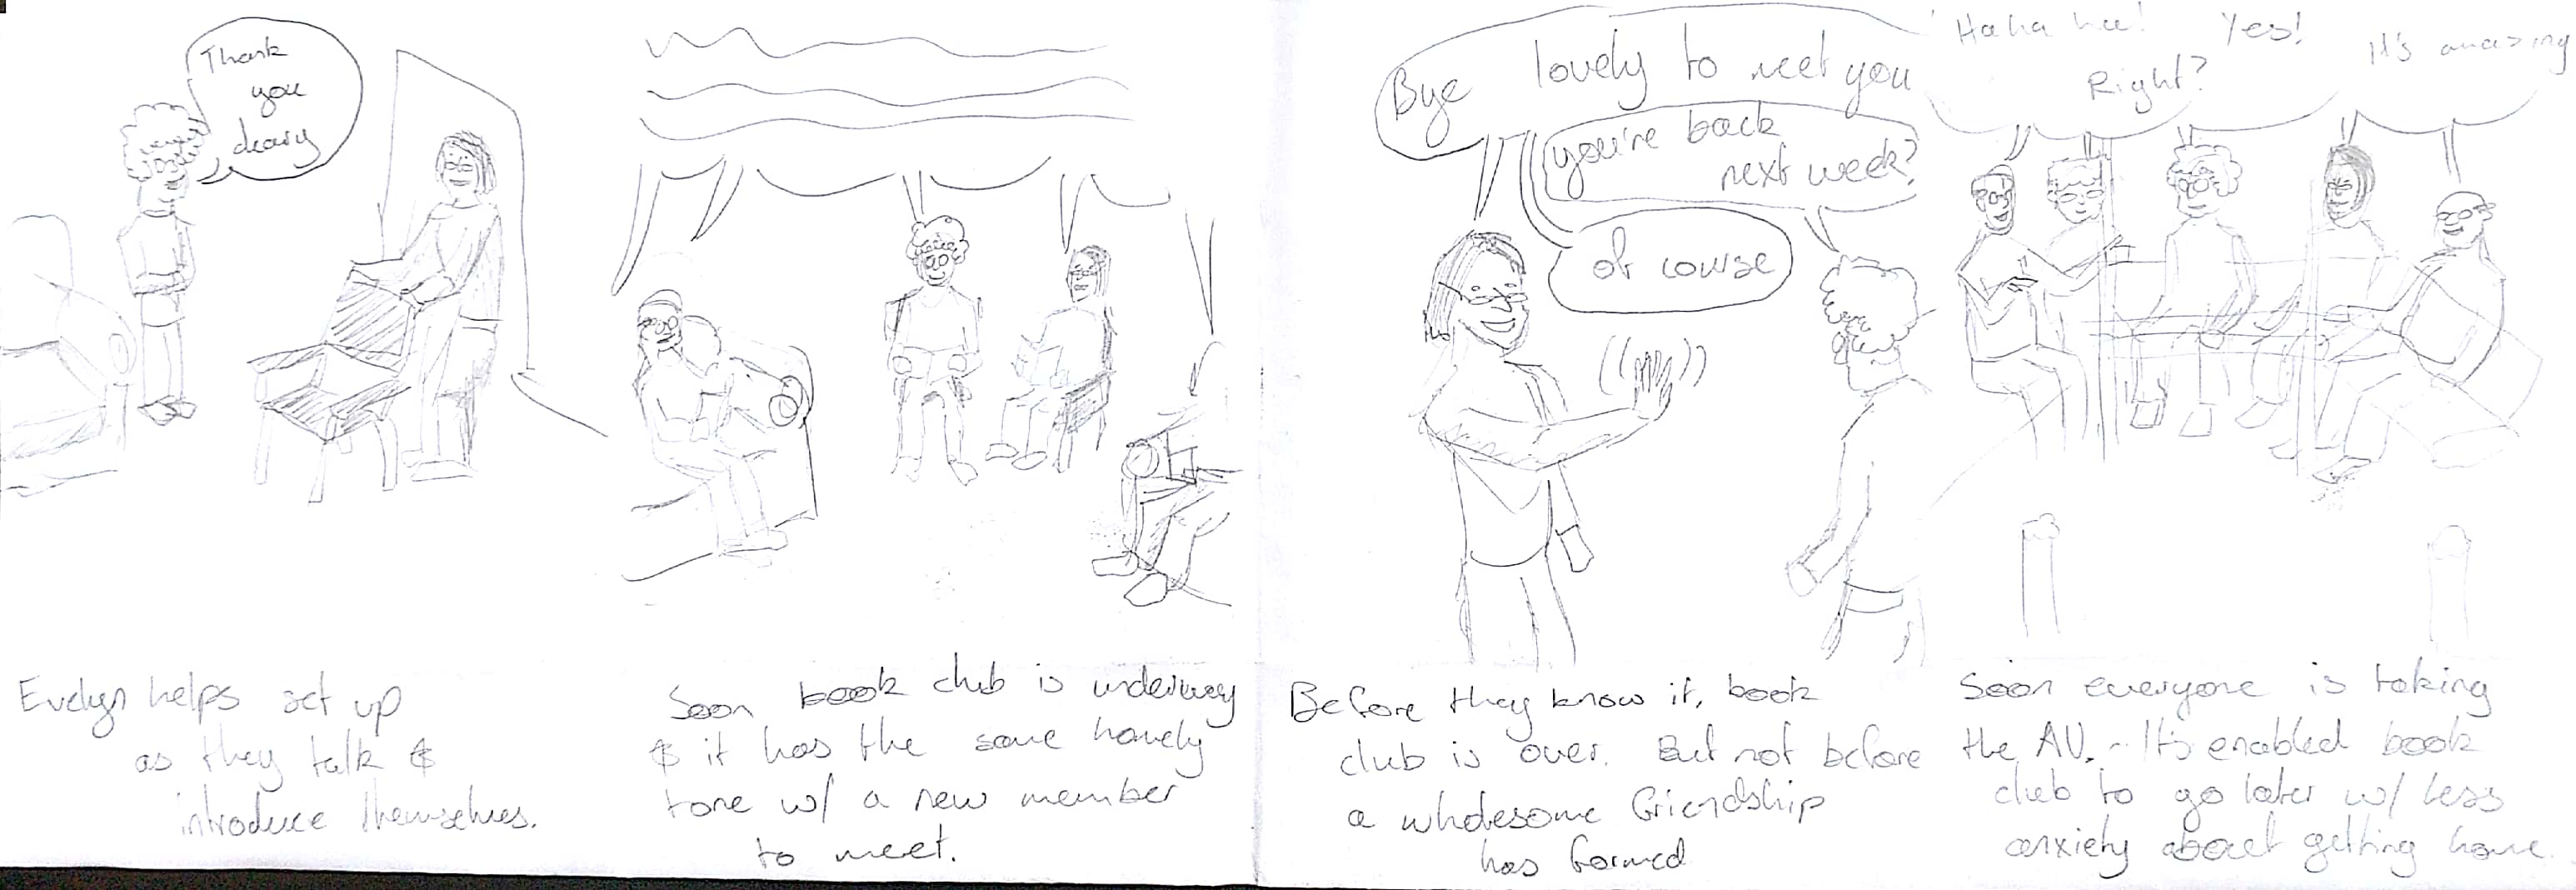 Thank
you
deary
Evelyn helps set up
as they talk &
introduce themselves.
Soon book club is underway
& it has the same homely
tone w/ a new member
to meet.
Bye lovely to meet you
you're back
next week?
of course
Before they know it, book
club is over. But not before
a wholesome friendship
has formed
Haha hee! Yes! It's amazing
Right?
Soon everyone is taking
the AV. - It's enabled book
club to go later w/ less
anxiety about getting home.